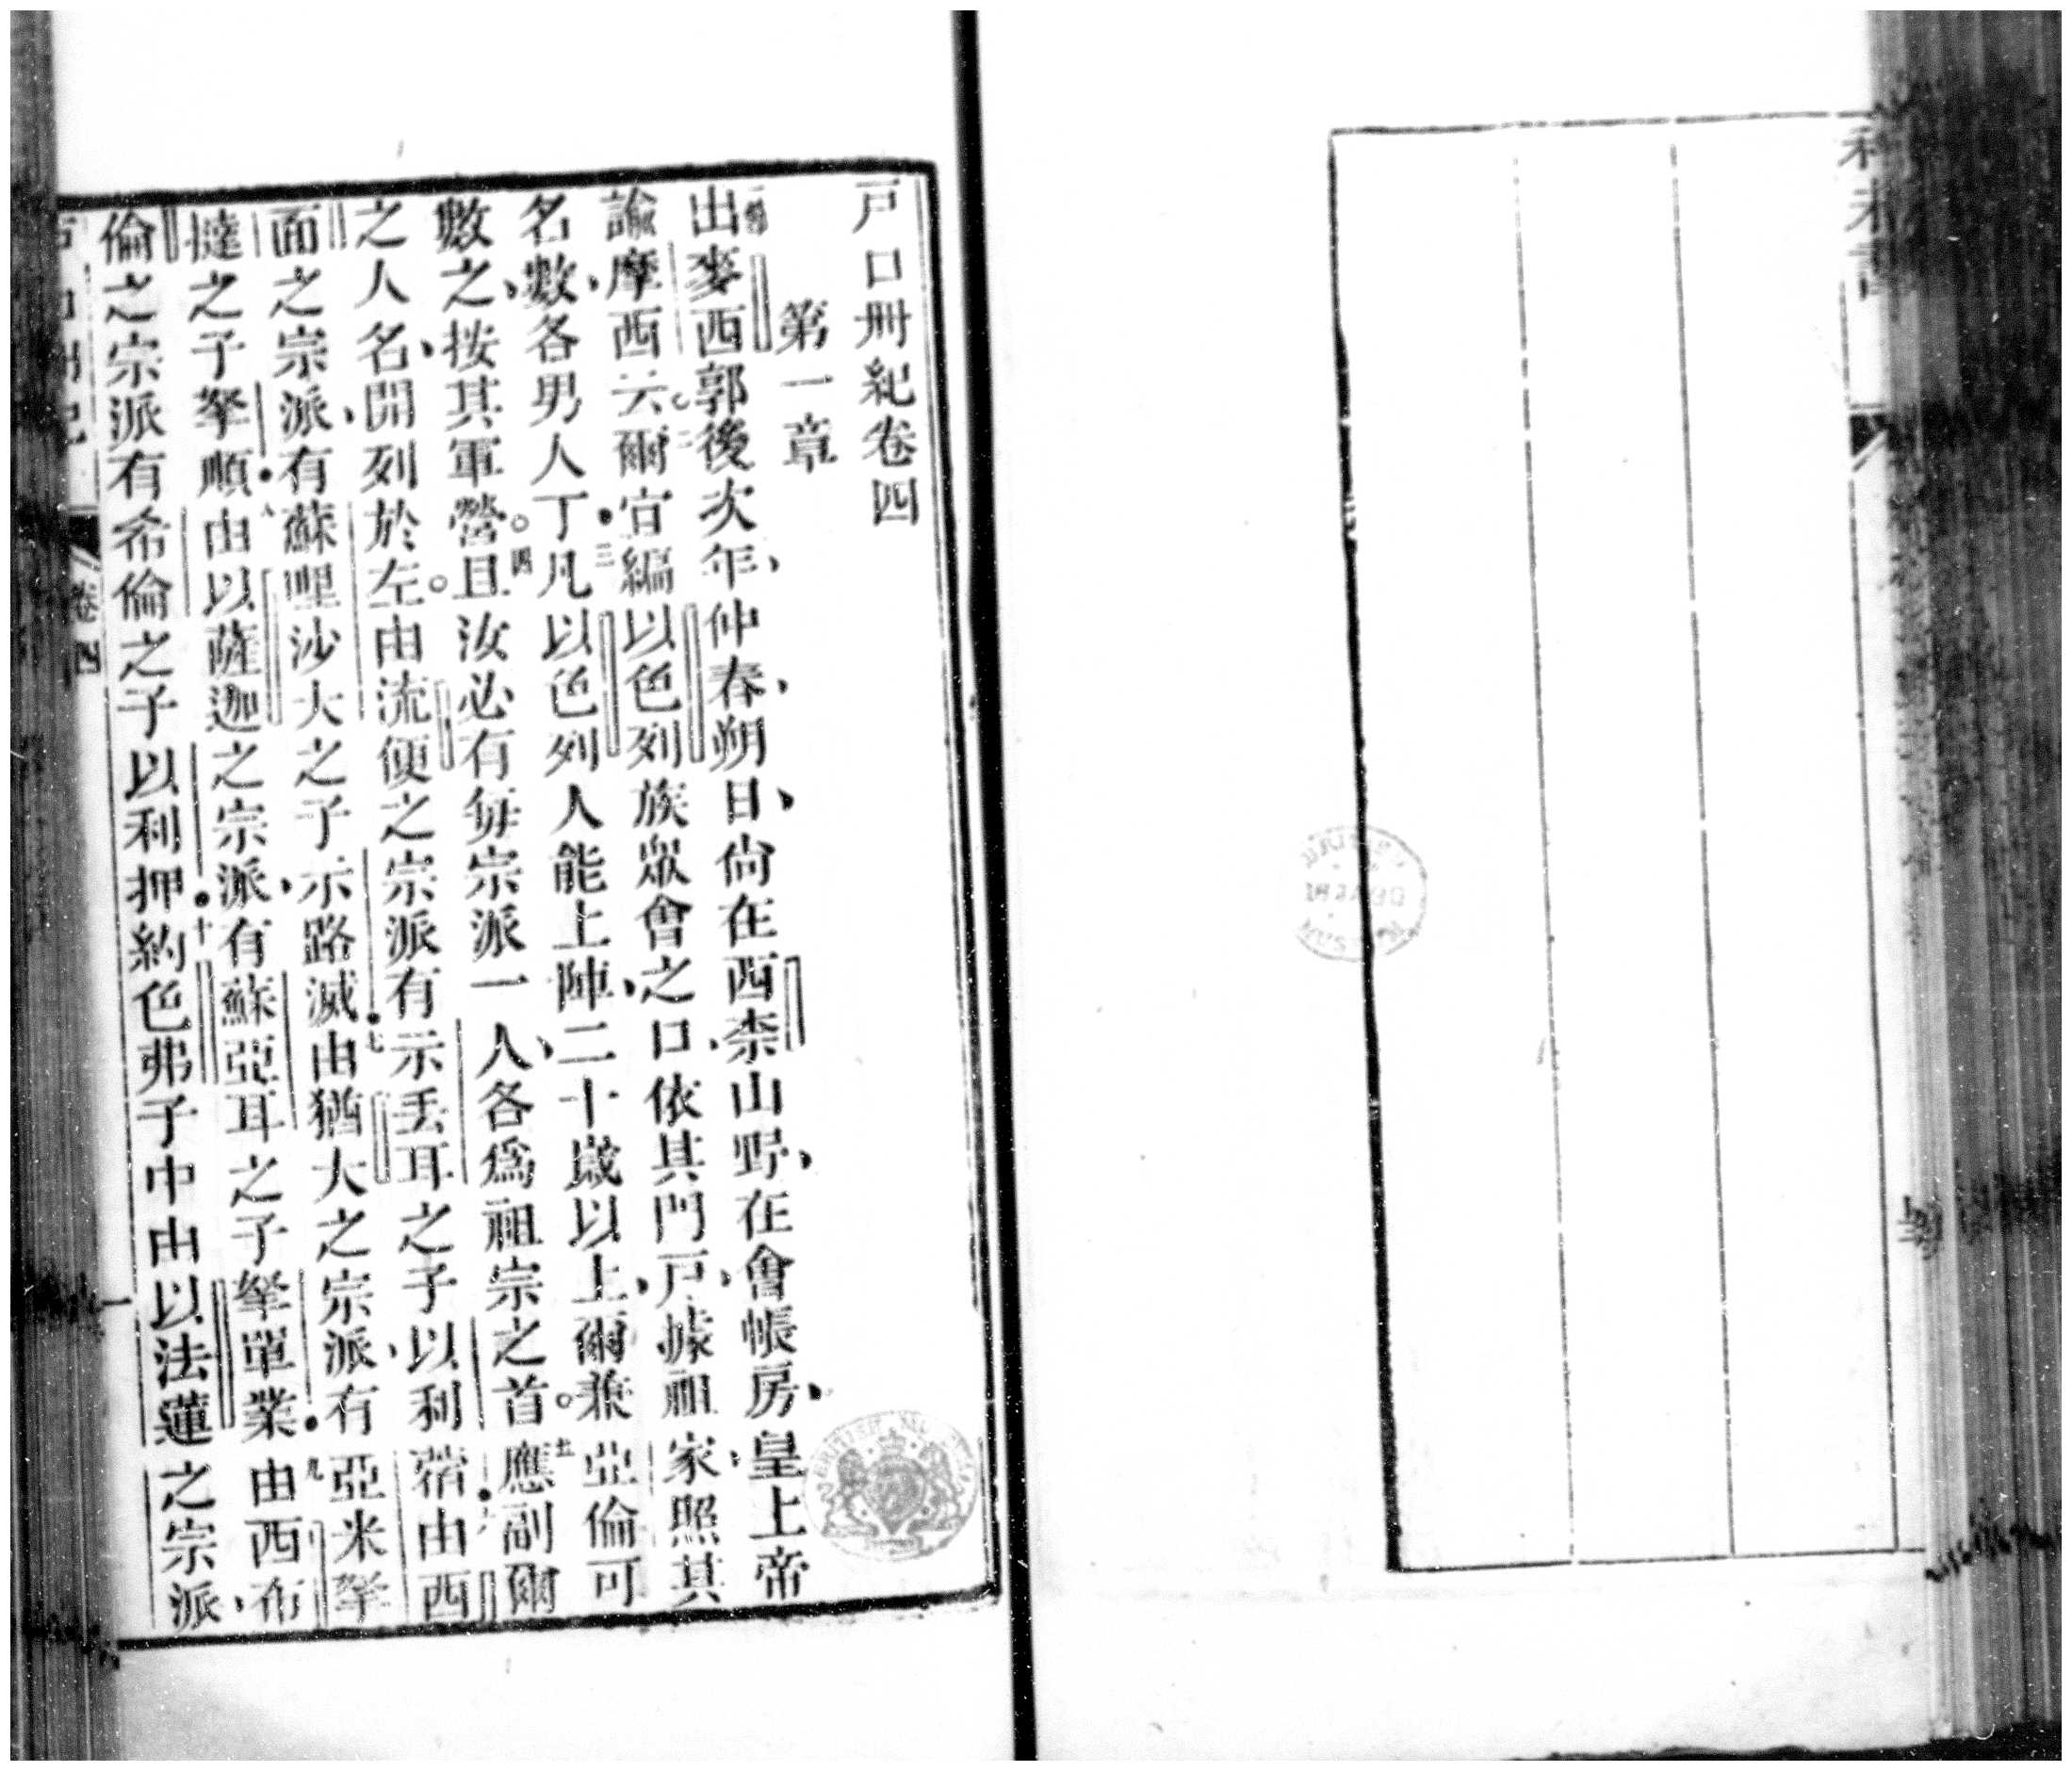 利未書
戶口冊紀卷四
第一章
出麥西郭後次年、仲春、朔日、尙在西柰山野、在會帳房、皇上帝
諭摩西云、爾宜編以色列族眾會之口、依其門戶、據祖家、照其
名數、各男人丁、凡以色列人能上陣、二十歲以上、爾兼亞倫可
數之、按其軍營。且汝必有每宗派一人、各爲祖宗之首。應副爾
之人名、開列於左。由流便之宗派有示丟耳之子以利蓿由西
面之宗派、有蘇哩沙大之子示路滅由猶大之宗派、有亞米拏
撻之子拏順由以薩迦之宗派、有蘇亞耳之子拏單業由西布
倫之宗派有希倫之子以利押約色弗子中由以法蓮之宗派、
卷四
BRITISH MUSEUM